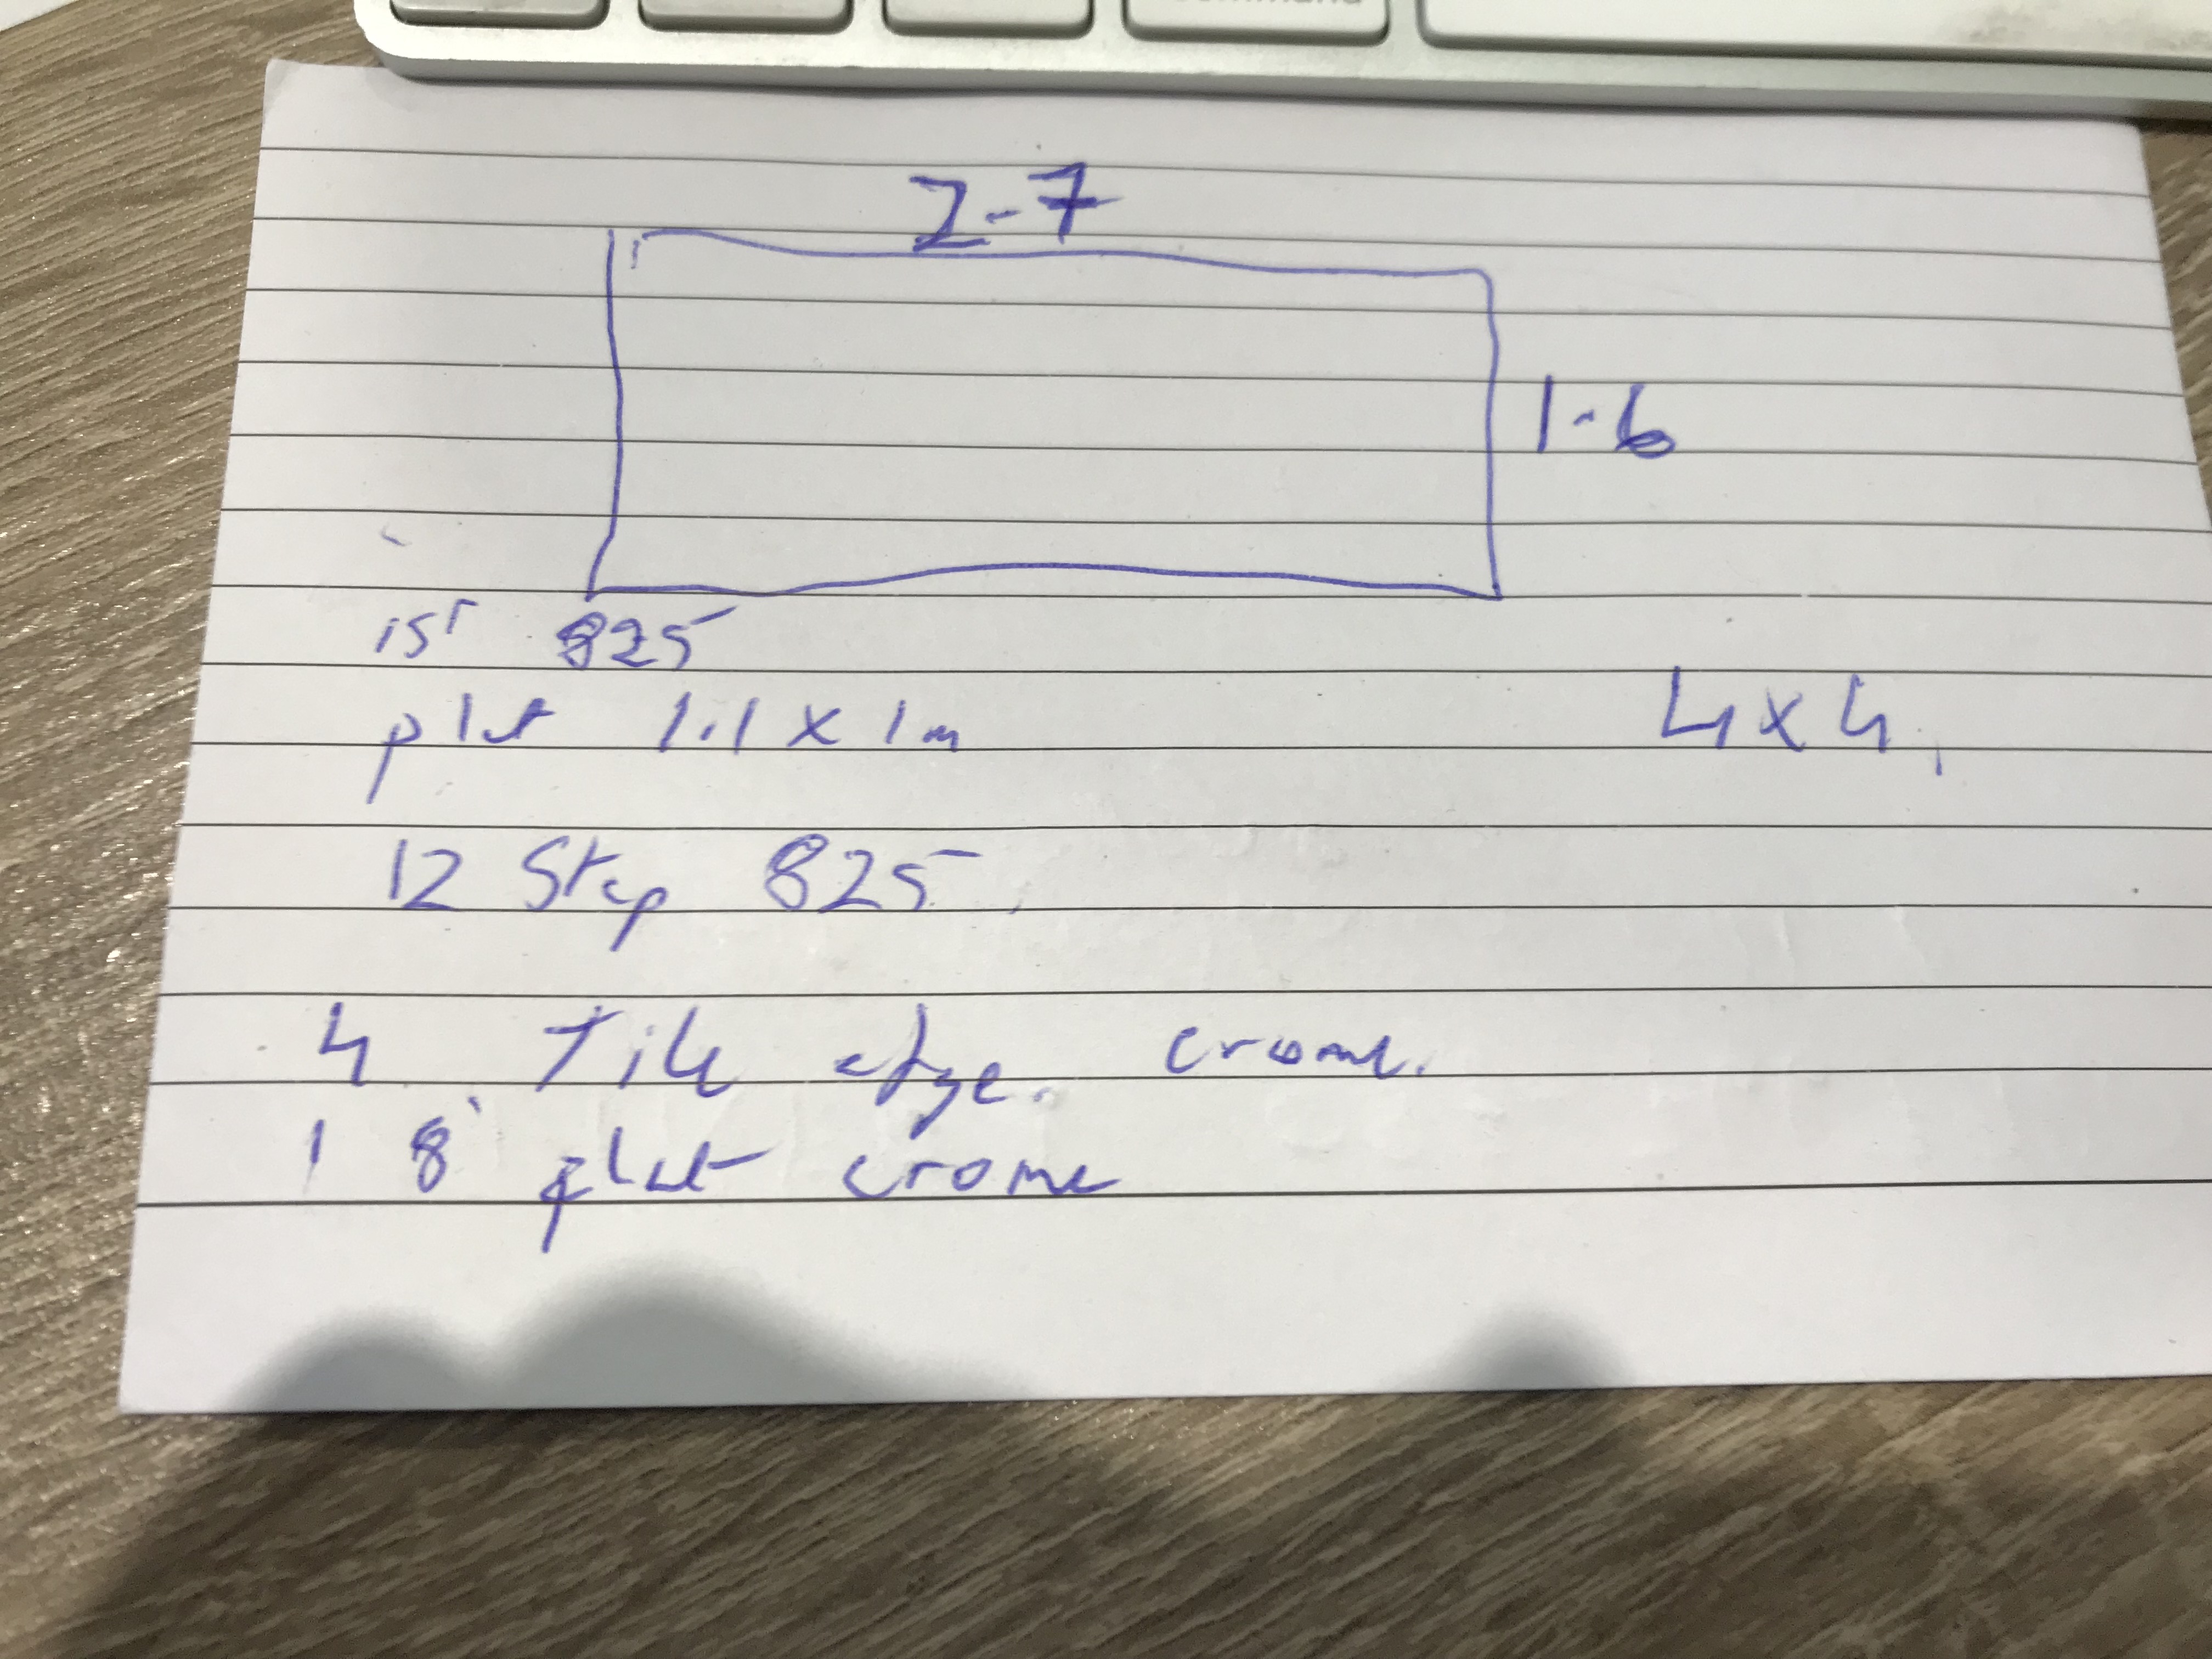 command
2-7
1-6
1st 825
plat 1.1 x 1m
4 x 4
12 Step 825
4 Tile edge. crome.
1 8' flat crome